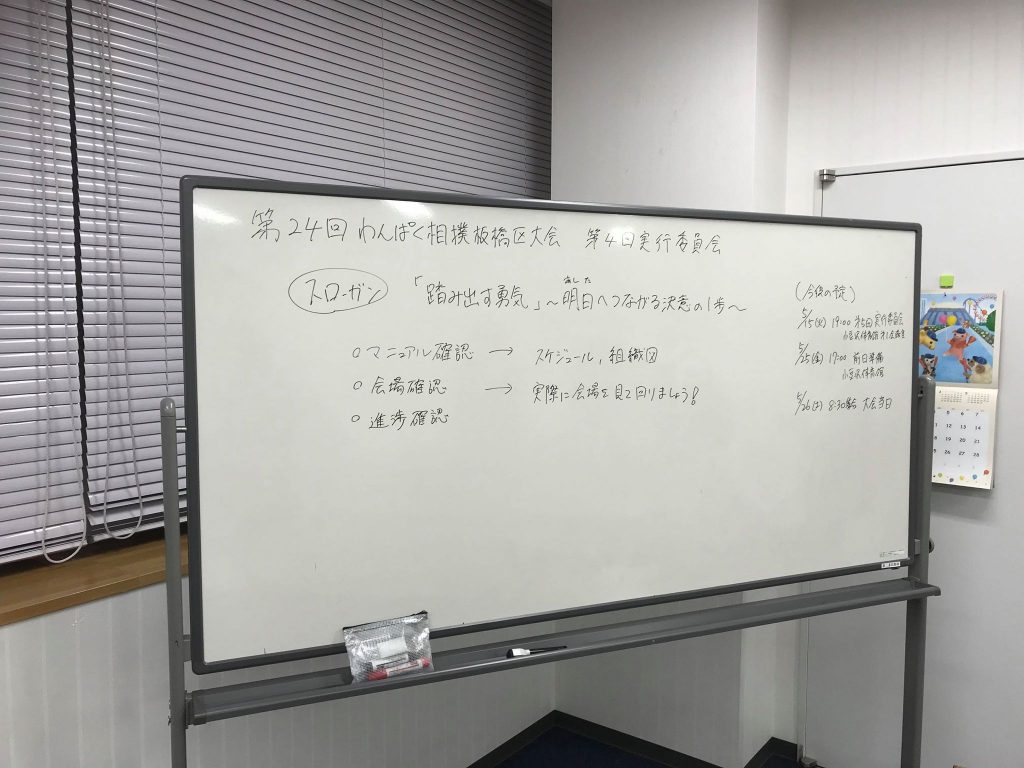 第24回 わんぱく相撲板橋区大会 第4回実行委員会
スローガン 「踏み出す勇気」～明日へつながる決意の1歩～
あした
○ マニュアル確認 → スケジュール，組織図
○ 会場確認 → 実際に会場を見て回りましょう!
○ 進捗確認
(今後の予定)
5/15(火) 19:00 第5回実行委員会
小豆沢体育館
5/25(金) 17:00 前日準備
小豆沢体育館
5/26(土) 8:30 大会当日
7 14
12 13 14
19 20 21
26 27 28